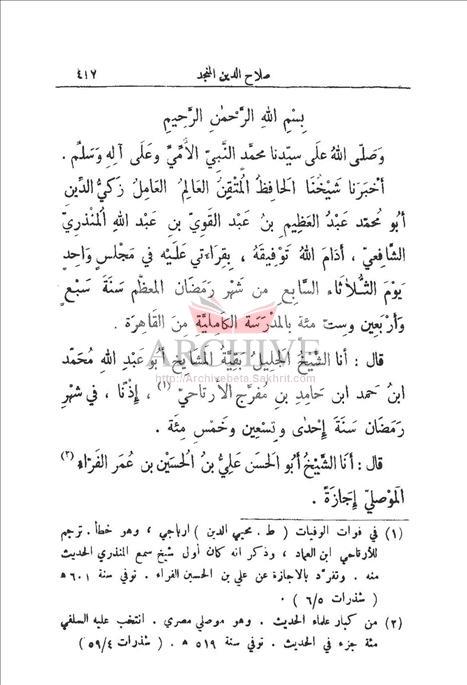 صلاح الدين المنجد ٤١٧
بِسْمِ اللهِ الرَّحْمٰنِ الرَّحِيمِ
وَصَلّى اللهُ على سَيّدنا محمَّد النَّبيّ الأُمِّيِّ وَعَلَى آلِهِ وَسَلَّم .
أخبرَنا شَيْخُنَا الحَافِظُ المُتْقِنُ العَالِمُ العَامِلُ زَكيُّ الدِّين
أبُو مُحمّد عَبْدُ العَظِيمِ بنُ عَبْد القَوِيّ بن عَبْد اللهِ المُنْذريّ
الشَّافعيّ ، أدَامَ اللهُ تَوْفِيقَهُ ، بِقِراءَتي عَلَيْه في مَجْلسٍ وَاحِدٍ
يَوْمَ الثُّلاثَاء السَّابِع من شَهْر رَمَضَان المعظَّم سَنَةَ سَبْعٍ
وَأرْبَعين وستّ مئة بالمَدْرَسَة الكَامليَّة مِنَ القَاهرَة .
ARCHIVE
قال : أنا الشَّيْخُ الجَليلُ بَقيَّةُ المشَايخِ أبُو عَبد اللهِ مُحَمَّد
http://Archivebeta.Sakhrit.com
ابنُ حمد ابن حَامِد بن مُفَرّج الارتاحيّ (١) ، إذْنًا ، في شَهْرِ
رَمَضَان سَنَةَ إحْدَى وَتِسْعين وَخَمْس مِئَة .
قال : أنَا الشَّيْخُ أبُو الحَسَن عَليُّ بنُ الحُسَيْن بن عُمَر الفَرّاء (٢)
المَوْصليّ إجَازَةً .
(١) في فوات الوفيات ( ط . محيي الدين ) ارباجي ، وهو خطأ . ترجم
للأرتاحي ابن العماد ، وذكر انه كان أول شيخ سمع المنذري الحديث
منه . وتفرّد بالاجازة عن علي بن الحسين الفراء . توفي سنة ٦٠١ ه
( شذرات ٦/٥ ) .
(٢) من كبار علماء الحديث . وهو موصلي مصري . انتخب عليه السلفي
مئة جزء في الحديث . توفي سنة ٥١٩ ه . ( شذرات ٥٩/٤ )